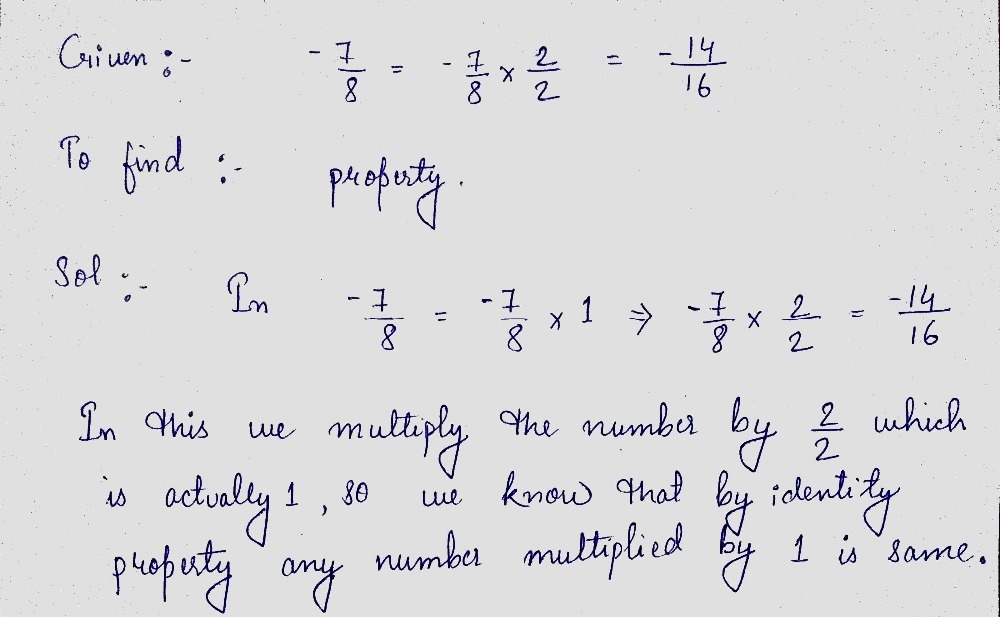 Given :- -7/8 = -7/8 × 2/2 = -14/16
To find :- property.
Sol :- In -7/8 = -7/8 × 1 ⇒ -7/8 × 2/2 = -14/16
In this we multiply the number by 2/2 which
is actually 1, so we know that by identity
property any number multiplied by 1 is same.